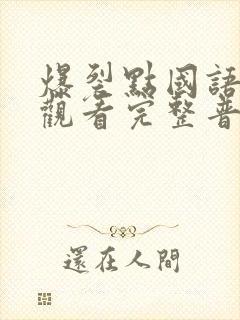 爆裂點國語
觀看完整普
還在人間